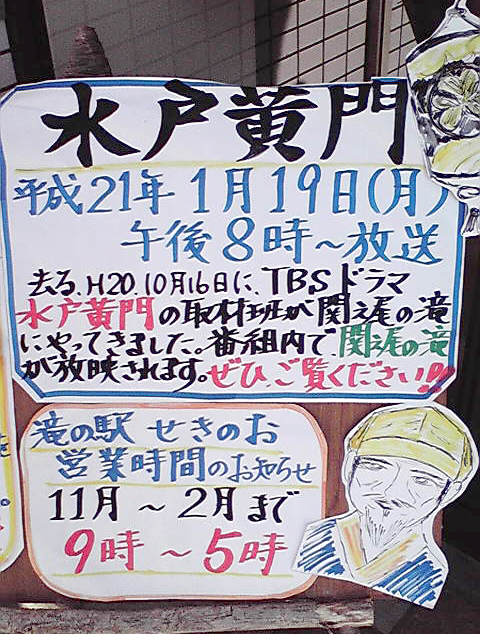 水戸黄門
平成21年1月19日(月)
午後8時～放送
去る、H20.10月16日に、TBSドラマ
水戸黄門の取材班が関之尾の滝
にやってきました。番組内で、関之尾の滝
が放映されます。ぜひ、ご覧ください!!
滝の駅 せきのお
営業時間のお知らせ
11月～2月まで
9時～5時